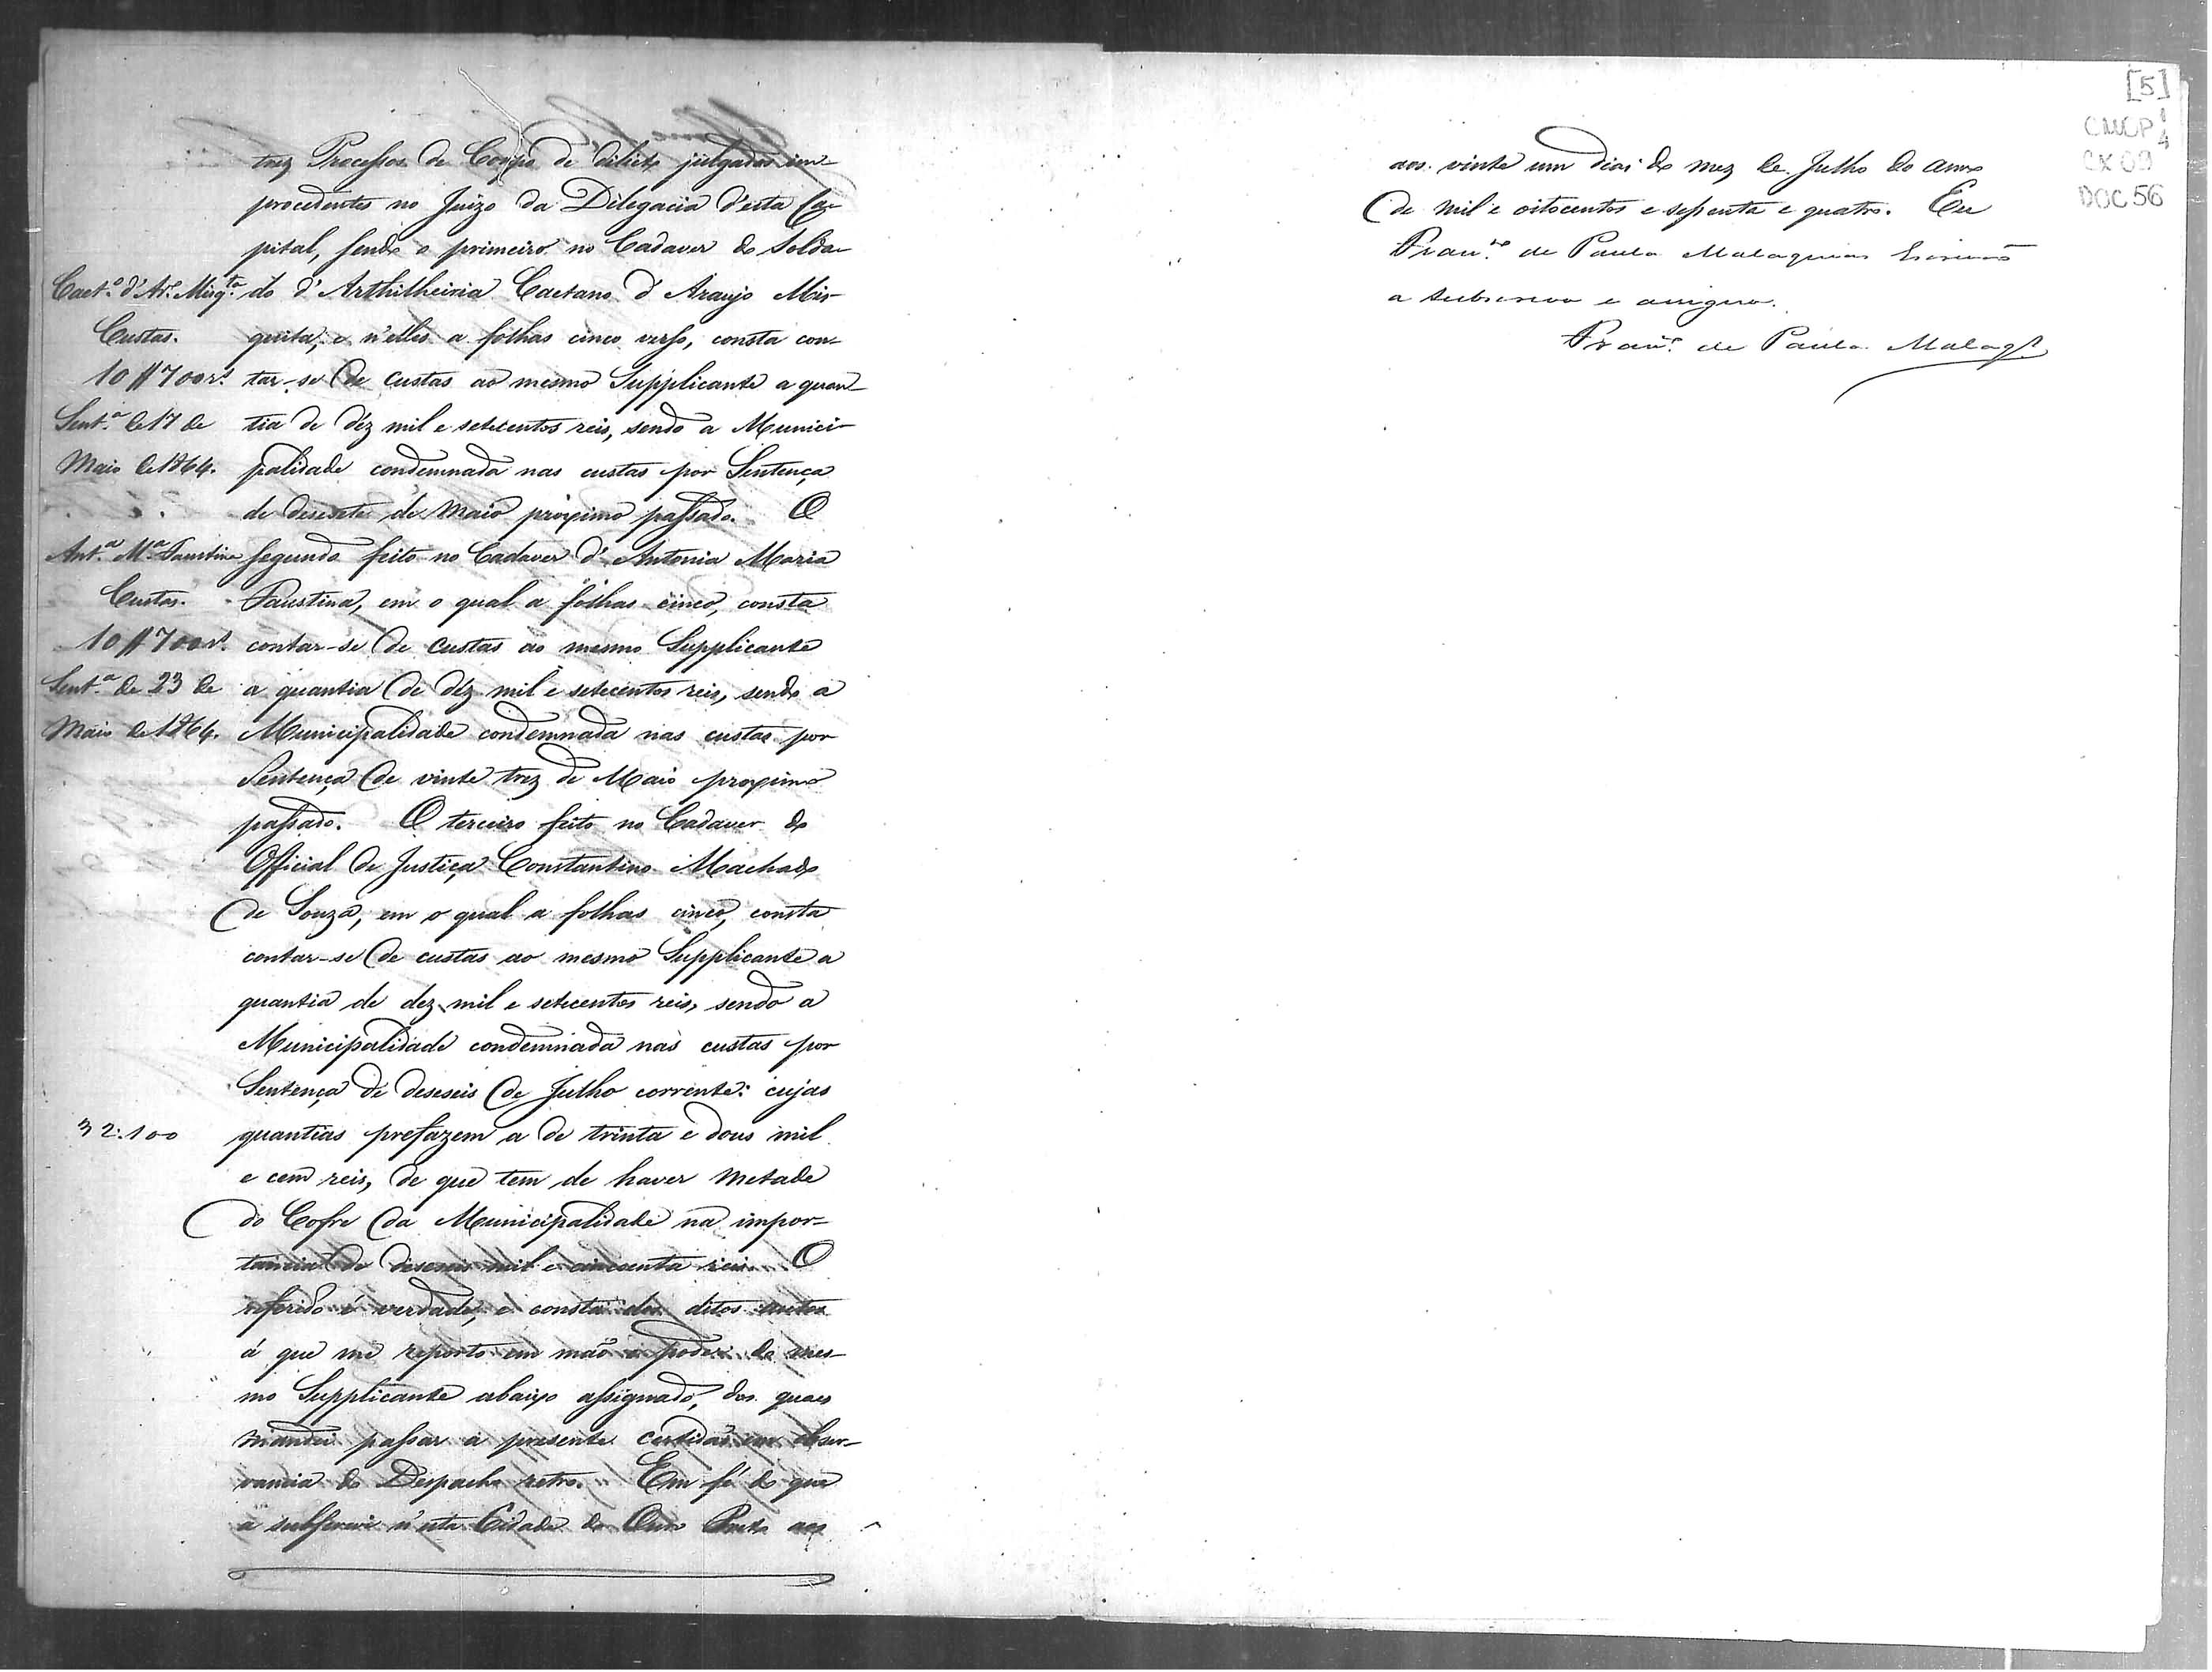 trez Processos de Corpo de dilicto julgados im-
procedentes no Juizo da Dilegacia d'esta Ca-
pital, sendo o primeiro no Cadaver do Solda-
Caet.º d'Ar.º Misq.ta
do d'Arthilheiria Caetano d'Araujo Mis-
Custas.
quita, e n'elles a folhas cinco verso, consta con-
10$700rs.
tar-se de custas ao mesmo Supplicante a quan-
Sent.ª de 17 de
tia de déz mil e setecentos reis, sendo a Munici-
Maio de 1864.
palidade condemnada nas custas por Sentença
de desesete de Maio proximo passado. O
Ant.ª M.ª Faustina
segundo feito no Cadaver d'Antonia Maria
Custas.
Faustina, em o qual a folhas cinco, consta
10$700rs.
contar-se de custas ao mesmo Supplicante
Sent.ª de 23 de
a quantia de déz mil e setecentos reis, sendo a
Maio de 1864.
Municipalidade condemnada nas custas por
Sentença de vinte trez de Maio proximo
passado. O terceiro feito no Cadaver do
Official de Justiça Constantino Machado
de Souza, em o qual a folhas cinco, consta
contar-se de custas ao mesmo Supplicante a
quantia de dez mil e setecentos reis, sendo a
Municipalidade condemnada nas custas por
Sentença de deseseis de Julho corrente: cujas
32:100
quantias prefazem a de trinta e dous mil
e cem reis, de que tem de haver metade
do Cofre da Municipalidade na impor-
tancia de deseseis mil e cincoenta reis. O
referido é verdade, e consta dos ditos autos
á que me reporto em mão e poder do mes-
mo Supplicante abaixo assignado, dos quaes
mandei passar a presente certidão em obser-
vancia do Despacho retro. Em fé do que
a subscrevi n'esta Cidade do Ouro Preto aos
[5]
CMOP
CX 09
DOC 56
aos vinte um dias do mez de Julho do anno
de mil e oitocentos e sessenta e quatro. Eu
Fran.co de Paula Malaquias Escrivão
a subscrevo e assigno.
Fran.co de Paula Malaq.s